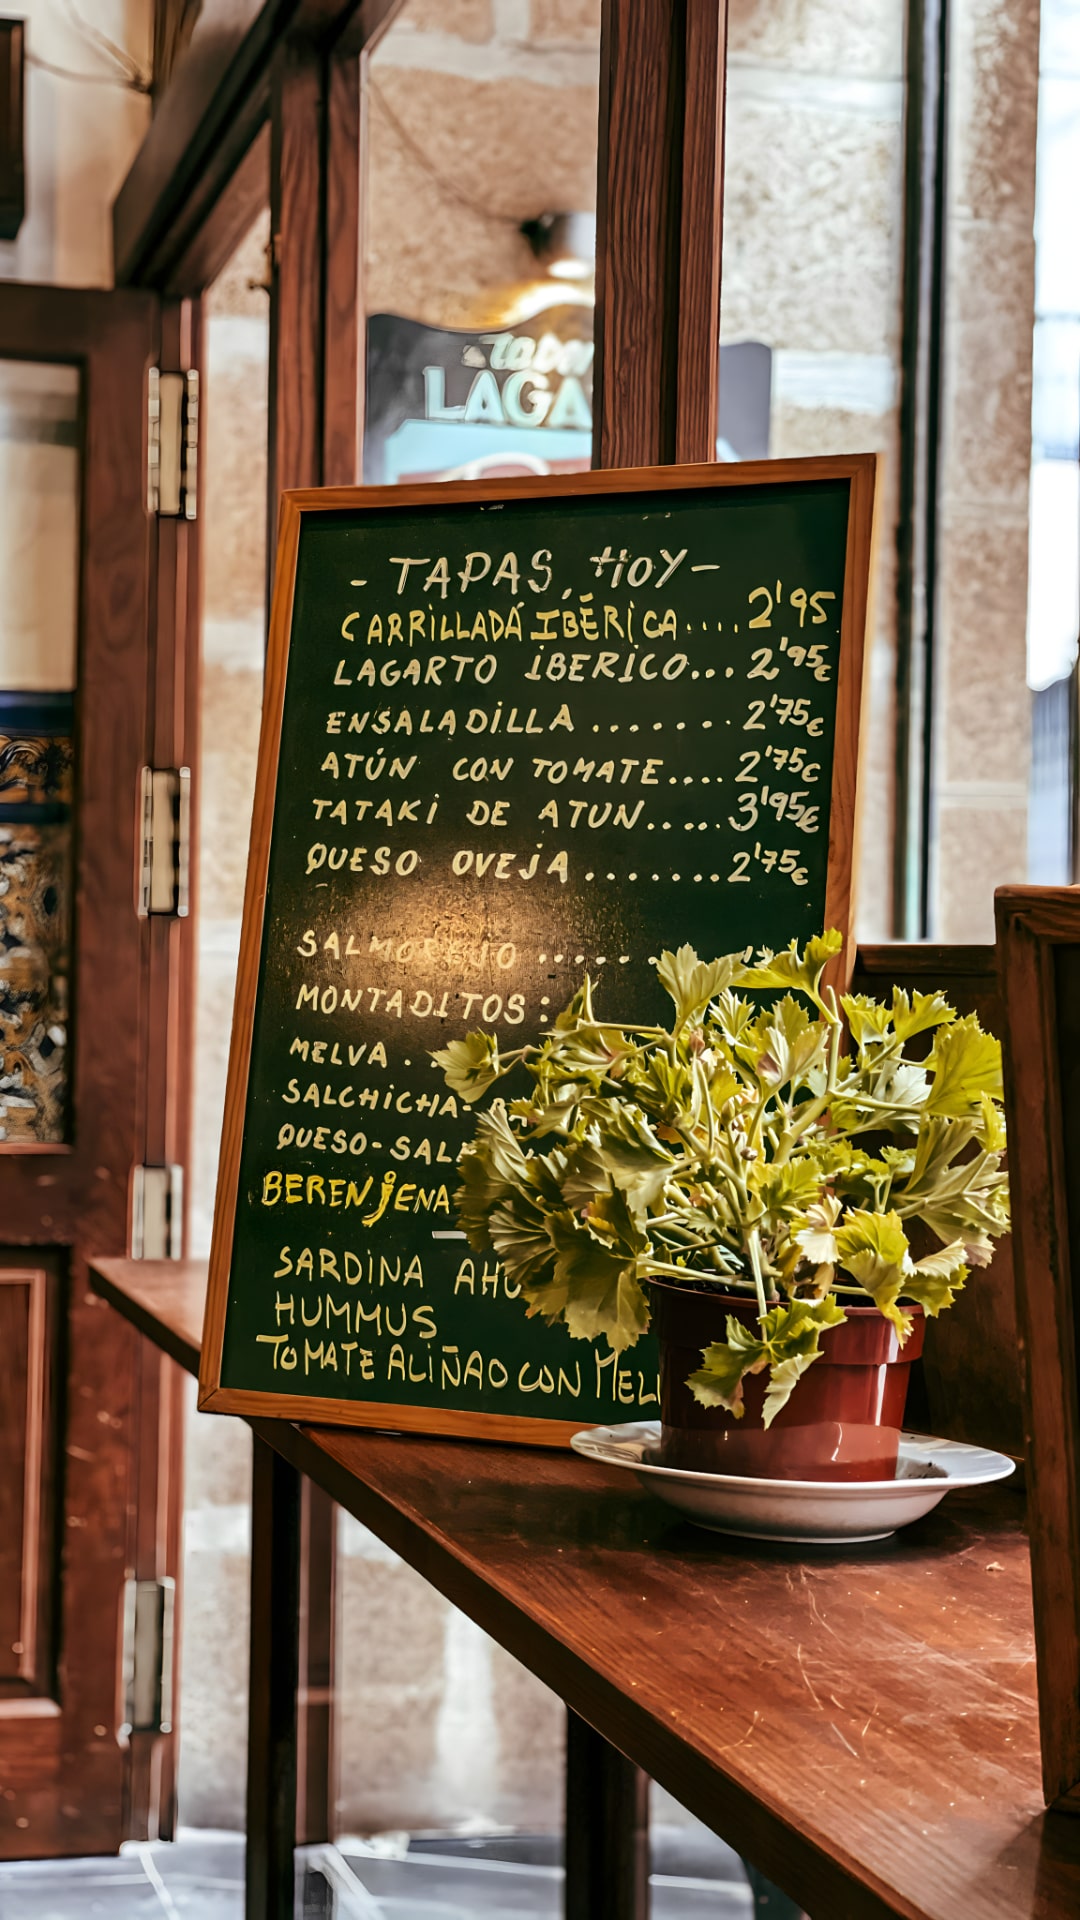 LAGA
- TAPAS, HOY -
CARRILLADA IBÉRICA.... 2'95
LAGARTO IBERICO... 2'95€
ENSALADILLA ....... 2'75€
ATÚN CON TOMATE.... 2'75€
TATAKI DE ATUN..... 3'95€
QUESO OVEJA ....... 2'75€
SALMOREJO ......
MONTADITOS:
MELVA . .
SALCHICHA-
QUESO-SAL
BERENJENA
SARDINA AHU
HUMMUS
TOMATE ALIÑAO CON MEL